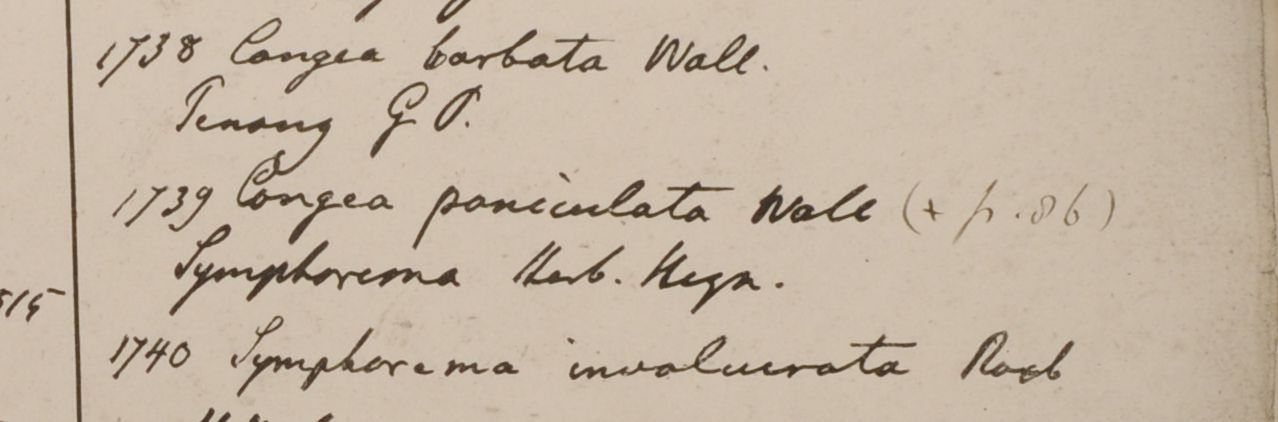 1738 Congea barbata Wall.
Penang G P.
1739 Congea paniculata Wall (+ p. 86)
Symphorema Herb. Heyn.
515
1740 Symphorema involucrata Roxb